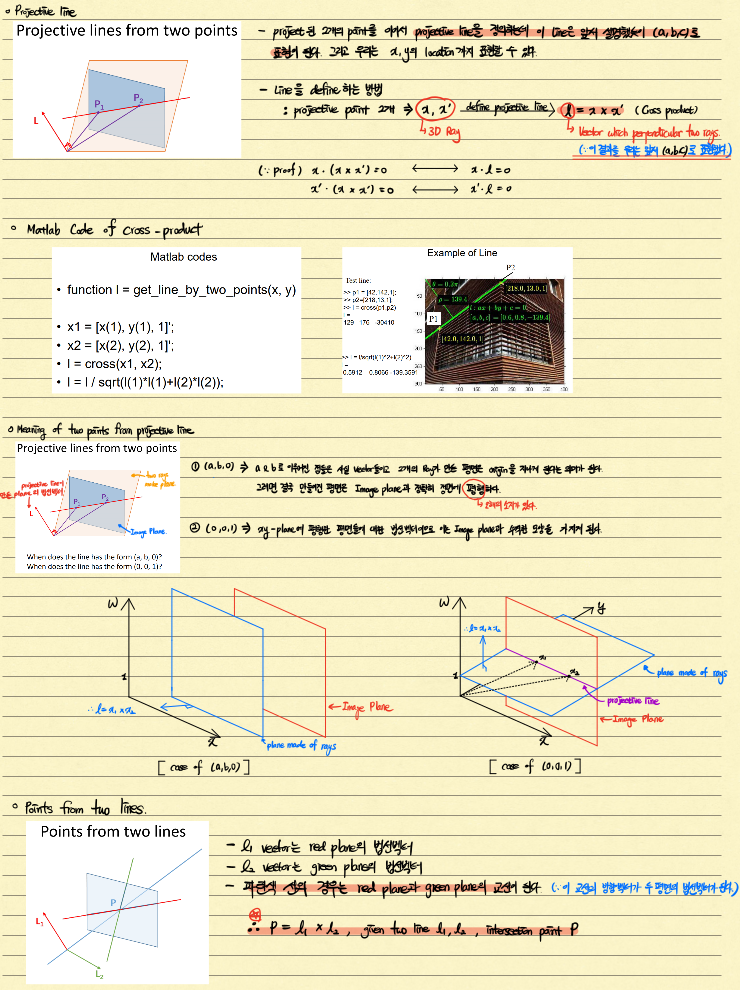 Projective line
Projective lines from two points
P1
P2
L
- project된 2개의 point를 이어서 projective line을 정의하는데 이 line은 앞서 설명했듯이 (a,b,c)로
표현이 된다. 그리고 우리는 x, y의 location까지 표현할 수 있다.
- Line을 define 하는 방법
: projective point 2개 ⇒ x, x' define projective line l = x × x' (Coss product)
3D Ray
Vector which perpendicular two rays.
(∵ 이 결과를 우리는 앞서 (a,b,c)로 표현했다.)
(∵ proof) x · (x × x') = 0 ⟷ x · l = 0
x' · (x × x') = 0 ⟷ x' · l = 0
Matlab Code of cross-product
Matlab codes
• function l = get_line_by_two_points(x, y)
• x1 = [x(1), y(1), 1]';
• x2 = [x(2), y(2), 1]';
• l = cross(x1, x2);
• l = l / sqrt(l(1)*l(1)+l(2)*l(2));
Example of Line
Test line:
>> p1 = [42,142,1];
>> p2=[218,13,1];
>> l = cross(p1,p2)
l =
129 176 -30410
>> l = l/sqrt(l(1)^2+l(2)^2)
0.5912 0.8066 -139.3591
P2
[218.0, 13.0, 1]
ρ = 139.4
l : ax + by + c = 0
[a, b, c] = [0.6, 0.8, -139.4]
P1
[42.0, 142.0, 1]
50 100 150 200 250 300 350 400
Meaning of two points from projective line
Projective lines from two points
two rays make plane
projective line이
만든 plane의 법선벡터
P1
P2
L
Image Plane.
When does the line has the form (a, b, 0)?
When does the line has the form (0, 0, 1)?
① (a,b,0) ⇒ a와 b로 이루어진 점들은 사실 vector들이고 2개의 Ray가 만든 평면은 origin을 지나게 된다는 의미가 된다.
그러면 결국 만들어진 평면은 Image plane과 정확히 평행하다.
② (0,0,1) ⇒ xy-plane에 평행한 평면들에 대한 법선벡터이므로 이는 Image plane과 수직한 모양을 가지게 된다.
W
1
∴ l = x1 × x2
x
Image Plane
plane made of rays
[ case of (a,b,0) ]
W
y
∴ l = x1 × x2
x1
x2
1
plane made of rays
projective line
Image Plane
x
[ case of (0,0,1) ]
Points from two lines.
Points from two lines
P
L1
L2
- l1 vector는 red plane의 법선벡터
- l2 vector는 green plane의 법선벡터
- 파란색 선의 경우는 red plane과 green plane의 교선이 된다. (∵ 이 교선의 방향벡터가 두 평면의 법선벡터가 된다.)
∴ P = l1 × l2, given two line l1, l2, intersection point P